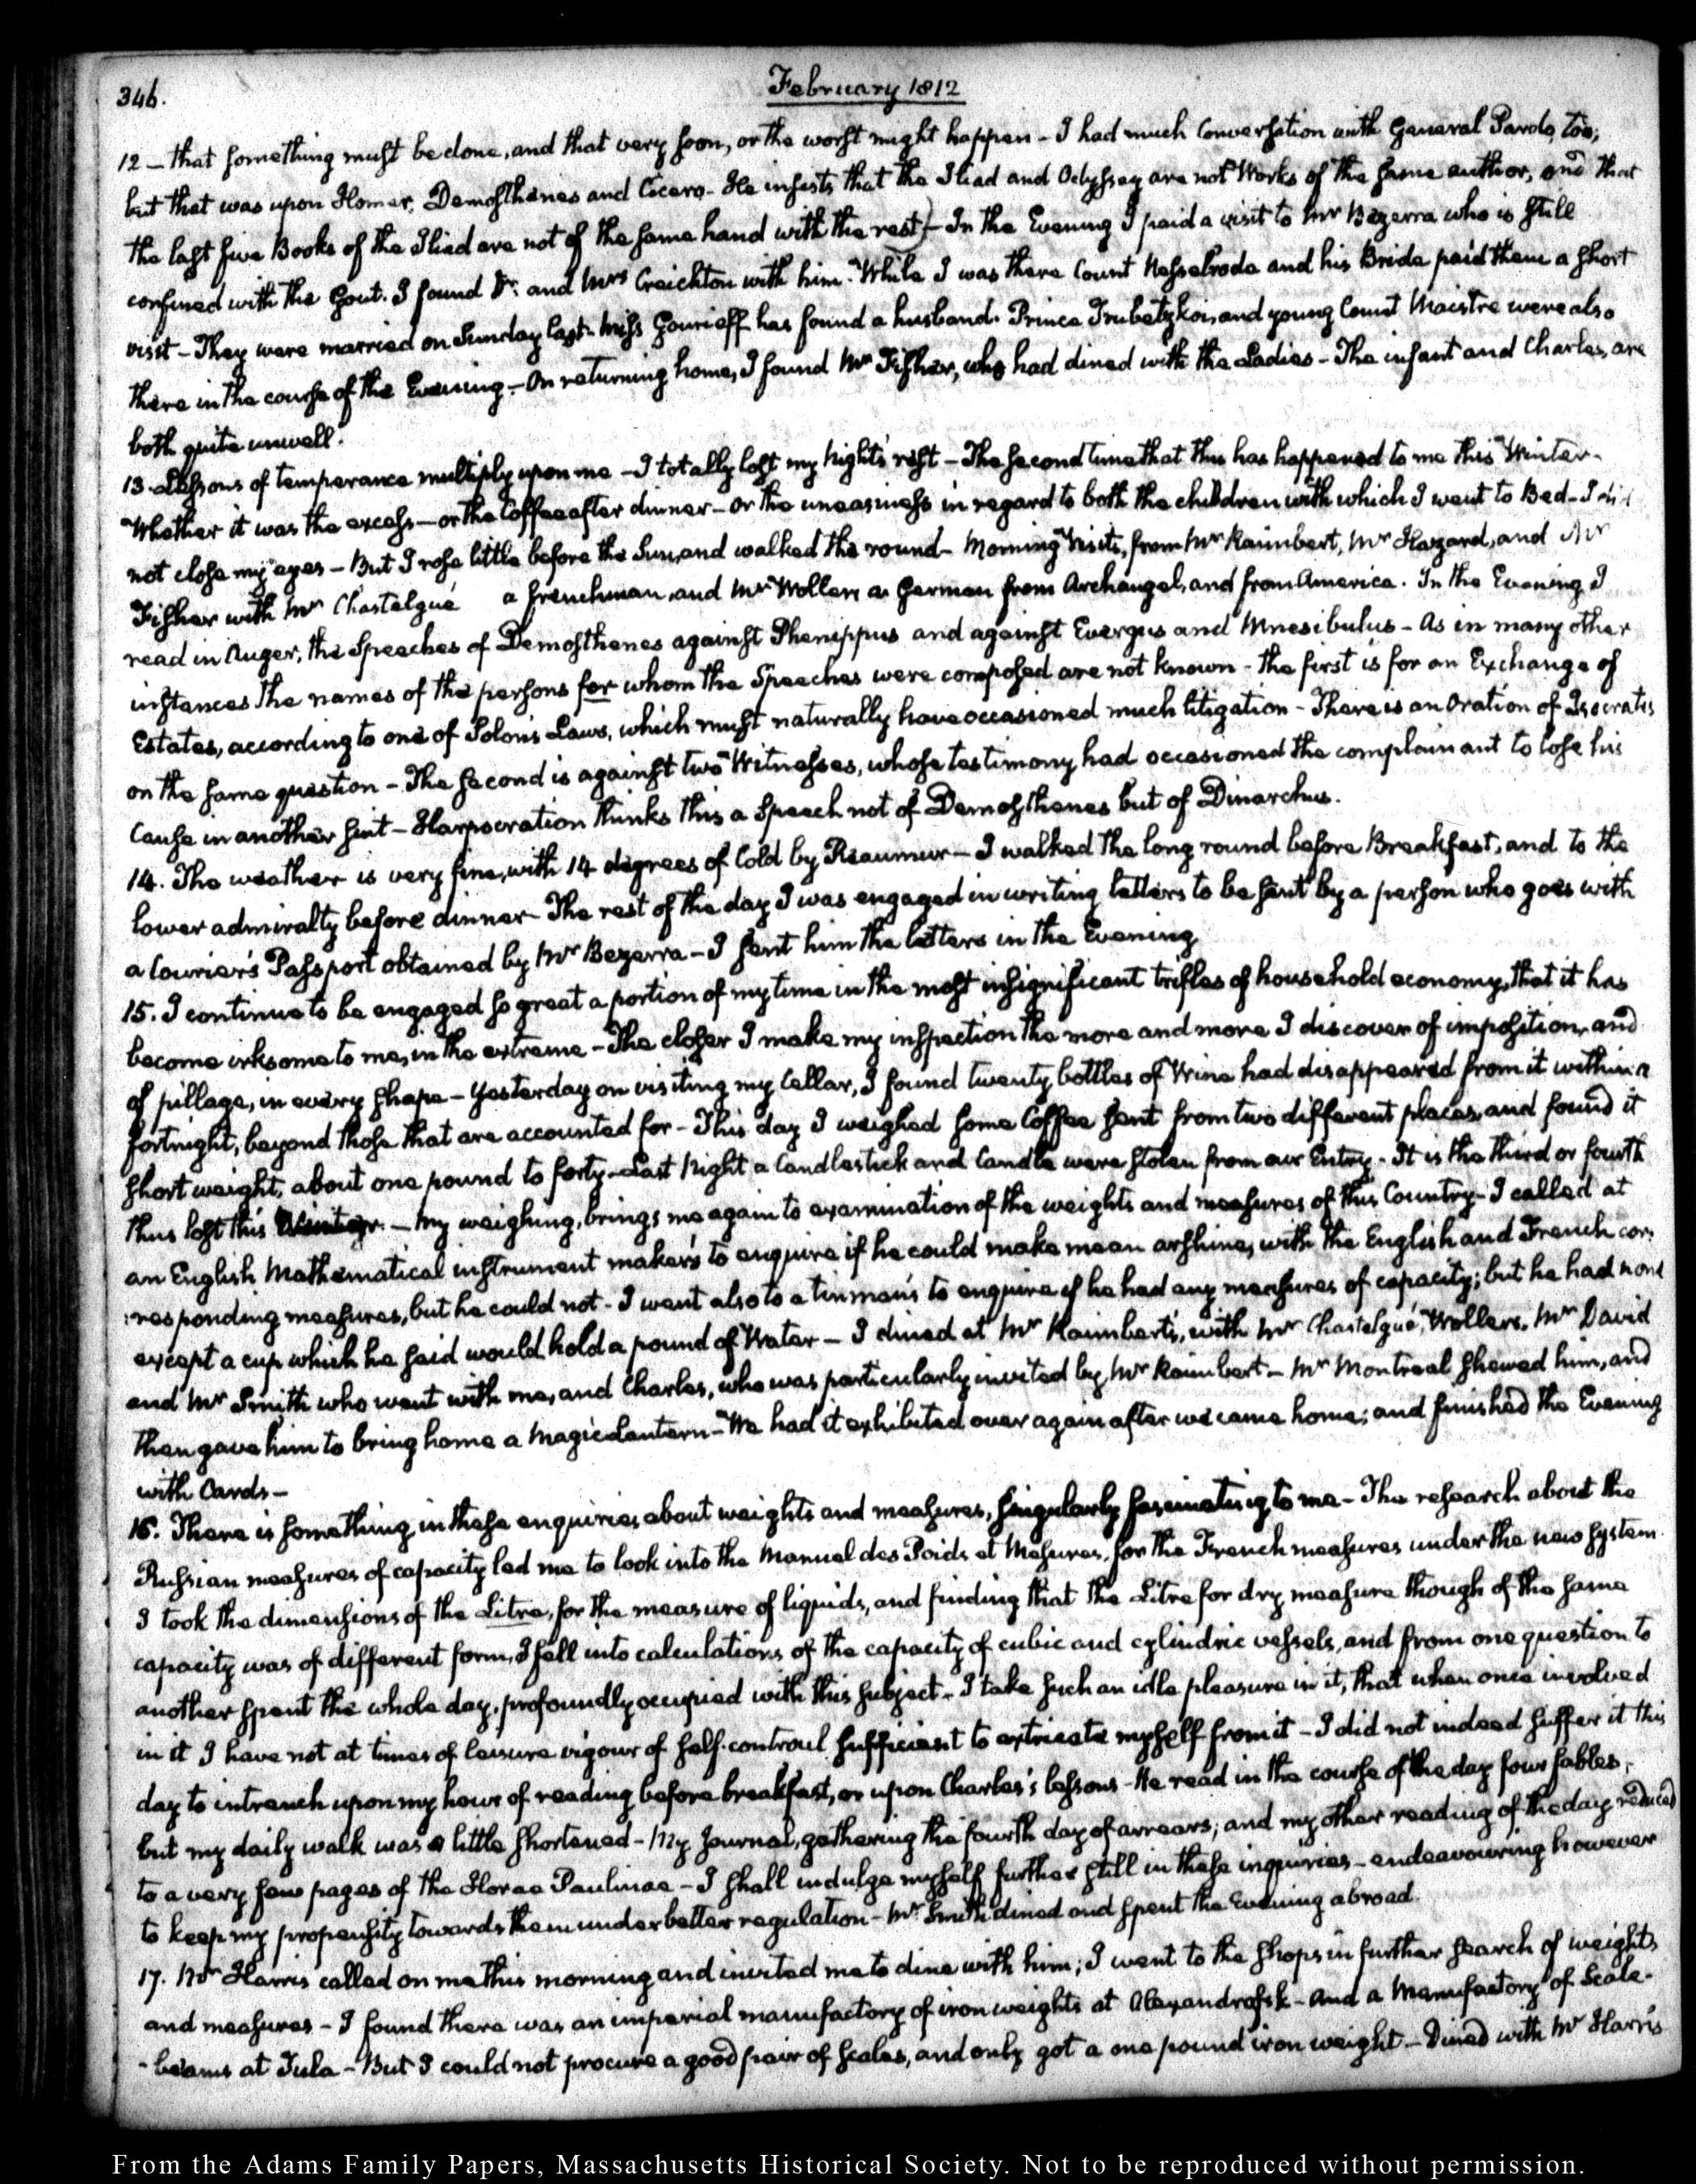 346.
February 1812
12 — that something must be done, and that very soon, or the worst might happen - I had much Conversation with General Pardo, too;
but that was upon Homer, Demosthenes and Cicero - He insists that the Iliad and Odyssey are not Works of the same author, and that
the last five Books of the Iliad are not of the same hand with the rest) - In the Evening I paid a visit to Mr Bezerra who is still
confined with the Gout. I found Dr. and Mrs Creichton with him. While I was there Count Nesselrode and his Bride paid them a short
visit - They were married on Sunday last. Miss Gourieff has found a husband. Prince Trubetzkoi, and young Count Maistre were also
there in the course of the Evening - On returning home, I found Mr Fisher, who had dined with the Ladies - The infant and Charles, are
both quite unwell.
13. Lessons of temperance multiply upon me - I totally lost my night's rest - The second time that this has happened to me this Winter -
Whether it was the excess - or the Coffee after dinner - or the uneasiness in regard to both the children with which I went to Bed - I did
not close my eyes - But I rose little before the Sun, and walked the round - Morning Visits, from Mr Raimbert, Mr Hazard, and Mr
Fisher with Mr Chastelgué a frenchman, and Mr Wollers a German from Archangel, and from America. In the Evening I
read in Auger, the Speeches of Demosthenes against Phenippus and against Evergus and Mnesibulus - As in many other
instances the names of the persons for whom the Speeches were composed are not known - the first is for an Exchange of
Estates, according to one of Solon's Laws, which must naturally have occasioned much litigation - There is an Oration of Isocrates
on the same question - The second is against two Witnesses, whose testimony had occasioned the complainant to lose his
Cause in another suit - Harpocration thinks this a Speech not of Demosthenes but of Dinarchus.
14. The weather is very fine, with 14 degrees of Cold by Reaumur - I walked the long round before Breakfast, and to the
lower admiralty before dinner - The rest of the day I was engaged in writing letters to be sent by a person who goes with
a Courier's Passport obtained by Mr Bezerra - I sent him the letters in the Evening
15. I continue to be engaged so great a portion of my time in the most insignificant trifles of household economy, that it has
become irksome to me, in the extreme - The closer I make my inspection the more and more I discover of imposition, and
of pillage, in every shape - Yesterday on visiting my Cellar, I found twenty bottles of Wine had disappeared from it within a
fortnight, beyond those that are accounted for - This day I weighed some Coffee sent from two different places, and found it
short weight, about one pound to forty - Last Night a Candlestick and Candle were stolen from our Entry - It is the third or fourth
thus lost this Winter. - My weighing, brings me again to examination of the weights and measures of this Country - I called at
an English Mathematical instrument maker's to enquire if he could make me an arshine, with the English and French cor-
:responding measures, but he could not - I went also to a tinman's to enquire if he had any measures of capacity; but he had none
except a cup which he said would hold a pound of Water - I dined at Mr Raimbert's, with Mr Chastelgué, Wollers, Mr David
and Mr Smith who went with me, and Charles, who was particularly invited by Mr Raimbert - Mr Montreal shewed him, and
then gave him to bring home a Magic Lantern - We had it exhibited over again after we came home; and finished the Evening
with Cards -
16. There is something in these enquiries about weights and measures, singularly fascinating to me - The research about the
Russian measures of capacity led me to look into the Manuel des Poids et Mesures, for the French measures under the new System
I took the dimensions of the Litre, for the measure of liquids, and finding that the Litre for dry measure though of the same
capacity was of different form, I fell into calculations of the capacity of cubic and cylindric vessels, and from one question to
another spent the whole day, profoundly occupied with this subject - I take such an idle pleasure in it, that when once involved
in it I have not at times of leisure vigour of self-controul sufficient to extricate myself from it - I did not indeed suffer it this
day to intrench upon my hour of reading before breakfast, or upon Charles's lessons - He read in the course of the day four fables,
but my daily walk was a little shortened - My Journal, gathering the fourth day of arrears; and my other reading of the day reduced
to a very few pages of the Horae Paulinae - I shall indulge myself further still in these inquiries - endeavouring however
to keep my propensity towards them under better regulation - Mr Smith dined and spent the Evening abroad.
17. Mr Harris called on me this morning and invited me to dine with him; I went to the shops in further search of weights
and measures - I found there was an imperial manufactory of iron weights at Alexandrofsk - And a Manufactory of Scale-
-beams at Tula - But I could not procure a good pair of Scales, and only got a one pound iron weight - Dined with Mr Harris
From the Adams Family Papers, Massachusetts Historical Society. Not to be reproduced without permission.